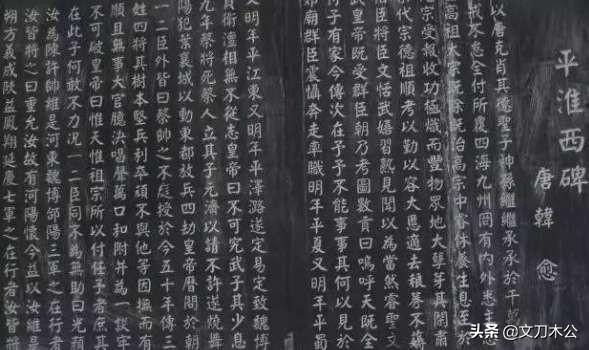 平淮西碑
唐 韓 愈
以唐克肖其德聖子神孫繼繼承承於千萬
戒不怠全付所覆四海九州罔有內外悉主悉
高祖太宗既除既治高宗中睿休養生息至於
宗受報收功極熾而豐物眾地大孽芽其間肅
代宗德祖順考以勤以容大慝適去稂莠不薅
相臣將臣文恬武嬉習熟見聞以為當然睿聖文
武皇帝既受群臣朝乃考圖數貢曰嗚呼天既全
付予有家今傳次在予予不能事事其何以見於
郊廟群臣震懾奔走率職明年平夏又明年平蜀
又明年平江東又明年平澤潞遂定易定致魏博
貝衛澶相無不從志皇帝曰不可究武予其少息
九年蔡將死蔡人立其子元濟以請不許遂燒舞
陽犯葉襄城以動東都放兵四劫皇帝曆問於朝
一二臣外皆曰蔡帥之不庭授於今五十年傳三
姓四將其樹本堅兵利卒頑不與他等因撫而有
順且無事大官臆決唱聲萬口和附并為一談牢
不可破皇帝曰惟天惟祖宗所以付任予者庶其
在此予何敢不力況一二臣同不為無助曰光顏
汝為陳許帥維是河東魏博郃陽三軍之在行者
汝皆將之曰重允汝故有河陽懷今益以汝維是
朔方義成陝益鳳翔延慶七軍之在行者汝皆將
头条 @文刀木公